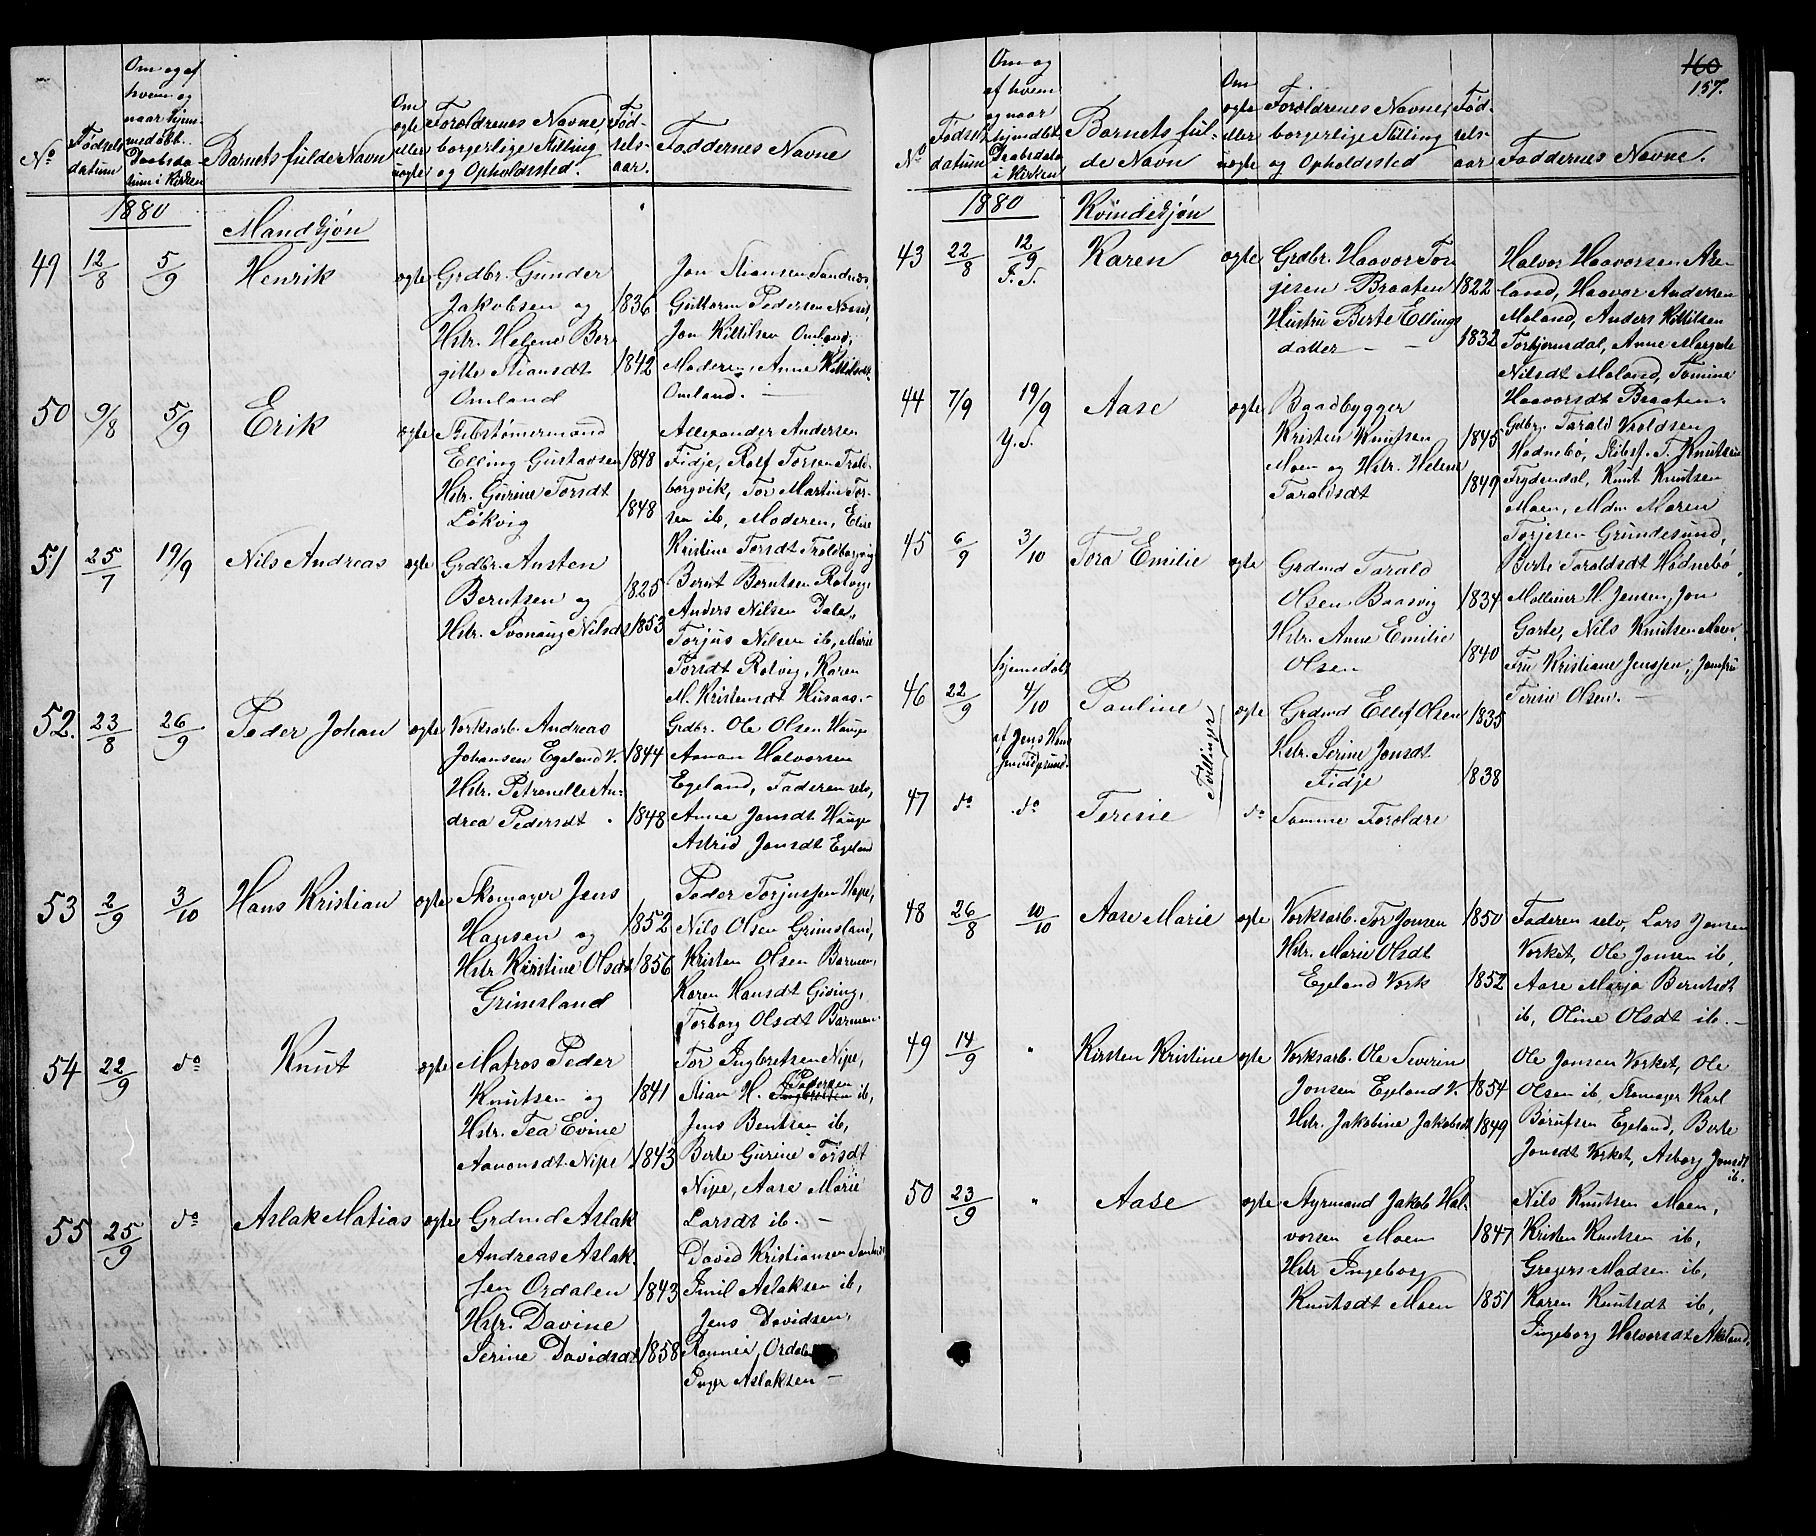 No
Fødsels
datum
Om og af
hvem og
naar hjem-
medøbt.
Daabsda-
tum i Kirken
Barnets fulde Navn
Om
ægte
eller
uægte
Forældrenes Navne,
borgerlige Stilling
og Opholdssted.
Fød-
sels-
aar.
Faddernes Navne
1880
Mandkjøn
49 12/8 5/9 Henrik ægte
Grdbr. Gunder
Jakobsen og 1836
Hstr. Helene Ber-
gitte Stiansdt 1842
Omland
Jon Stiansen Sandnes,
Guttorm Pedersen
Jon Kittilsen Omland,
Moderen, Anne Kittilsdt
Omland. —
50 9/8 5/9 Erik ægte
Elling Gustavsen 1848
Hstr. Gurine Torsdt 1848
Løkvig
Allexander Andersen
Fidje, Rolf Torsen Trold-
borgvik, Tor Martin Tor-
sen ib, Moderen, Elise
Kristine Torsdt Troldborgvig
51 25/7 19/9 Nils Andreas ægte
Grdbr. Austen
Berntsen og 1825
Hstr. Svonaug Nilsdt 1853
Bernt Berntsen Rotvig,
Anders Nilsen Dale,
Torjus Nilsen ib, Marie
Torsdt Rotvig, Karen
M. Kristensdt Husaas. –
52. 23/8 26/9 Peder Johan ægte
Værksarb. Andreas
Johansen Egeland V. 1844
Hstr. Petronelle An-
drea Pedersdt 1848
Grdbr. Ole Olsen Hauge
Aanon Halvorsen
Egeland, Faderen selv,
Anne Jonsdt Hauge
Astrid Jonsdt Egeland
53 2/9 3/10 Hans Kristian ægte
Skomager Jens
Hansen og 1852
Hstr Kristine Olsdt 1856
Grimsland
Peder Torjussen Hope,
Nils Olsen Grimsland,
Kristen Olsen Barmen,
Karen Hansdt Giving,
Torborg Olsdt Barmen.
54 22/9 do Knut ægte
Matros Peder
Knutsen og 1841
Hstr. Tea Evine
Aanonsdt Nipe 1843
Tor Ingbretsen Nipe,
Pedersen
Stian H. Ingbretsen ib,
Jens Bentsen ib,
Berte Gurine Torsdt
Nipe, Aase Marie
Larsdt ib. —
55 25/9 do Aslak Matias ægte
Grdmd Aslak
Andreas Aslak-
sen Ordalen 1843
Hstr. Davine
Serine Davidsdt 1858
David Kristiansen
Emil Aslaksen ib,
Jens Davidsen,
Inger Aslaksen —
160
157.
No
Fødsels
datum
Om og
af hvem
og naar
hjemdøbt
Daabsdatum
i Kirken
Barnets ful-
de Navn
Om
ægte
eller
uægte
Forældrenes Navne,
borgerlige Stilling
og Opholdssted
Fød-
sels-
aar
Faddernes Navne.
1880
Kvindekjøn
43 22/8 12/9 Karen ægte
Grdbr. Haavor Tor-
jesen Braaten 1822
Hustru Berte Ellings-
datter — 1832
Halvor Haavorsen Ase-
land, Haavor Andersen
Moland, Anders Kittilsen
Torbjørnsdal, Anne Margrete
Nilsdt Moland, Tomine
Haavorsdt Braaten.
44 7/9 19/9 Aase ægte
Baadbygger
Kristen Knutsen 1845
Moen og Hstr. Helene 1849
Taraldsdt
Gdbr. Tarald Kroldsen
Hødnebø, Skibsf. T. Knutsen
Frydendal, Knut Knutsen
Moen, Mdm Maren
Torjesen Grundesund,
Berte Taraldsdt Hødnebø,
45 6/9 3/10 Tora Emilie ægte
Grdmd Tarald
Olsen Baasvig 1834
Hstr. Anne Emilie 1840
Olsen
H. Jensen, Jon
Garte, Nils Knutsen Moen,
Fru Kristiane Jenssen, Jomfru
Terese Olsen. —
hjemmedøbt
46 22/9 4/10 Pauline ægte
af Jens
Tvillinger
Grdmd Ellef Olsen 1835
Hstr. Serine Jonsdt
Fidje 1838
47 do do Teresie do Samme Forældre
48 26/8 10/10 Aase Marie ægte
Værksarb. Tor Jonsen 1850
Hstr. Marie Olsdt
Egeland Værk 1852
Faderen selv, Lars Jonsen
Værket, Ole Jonsen ib,
Aase Marja Berntsdt
ib, Oline Olsdt ib. —
49 14/9 " Kirsten Kristine ægte
Værksarb. Ole Severin
Jonsen Egeland V. 1854
Hstr. Jakobine Jakobsdt 1849
Ole Jonsen Værket, Ole
Olsen ib, Skomager Karl
Børufsen Egeland, Berte
Jonsdt Værket, Asborg Jonsdt
ib.
50 23/9 " Aase ægte
Styrmand Jakob Hal-
vorsen Moen 1847
Hstr Ingeborg
Knutsdt Moen 1851
Nils Knutsen Moen,
Kristen Knutsen ib,
Gregers Madsen ib,
Karen Knutsdt ib,
Ingeborg Halvorsdt Akeland.